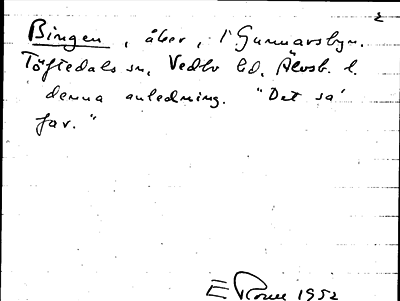 2
Bingen, åker, i Gunnarsbyn.
Töftedals sn, Vedbo hd, Älvsb. l.
denna anledning. "Det sa'
far."
E 1952